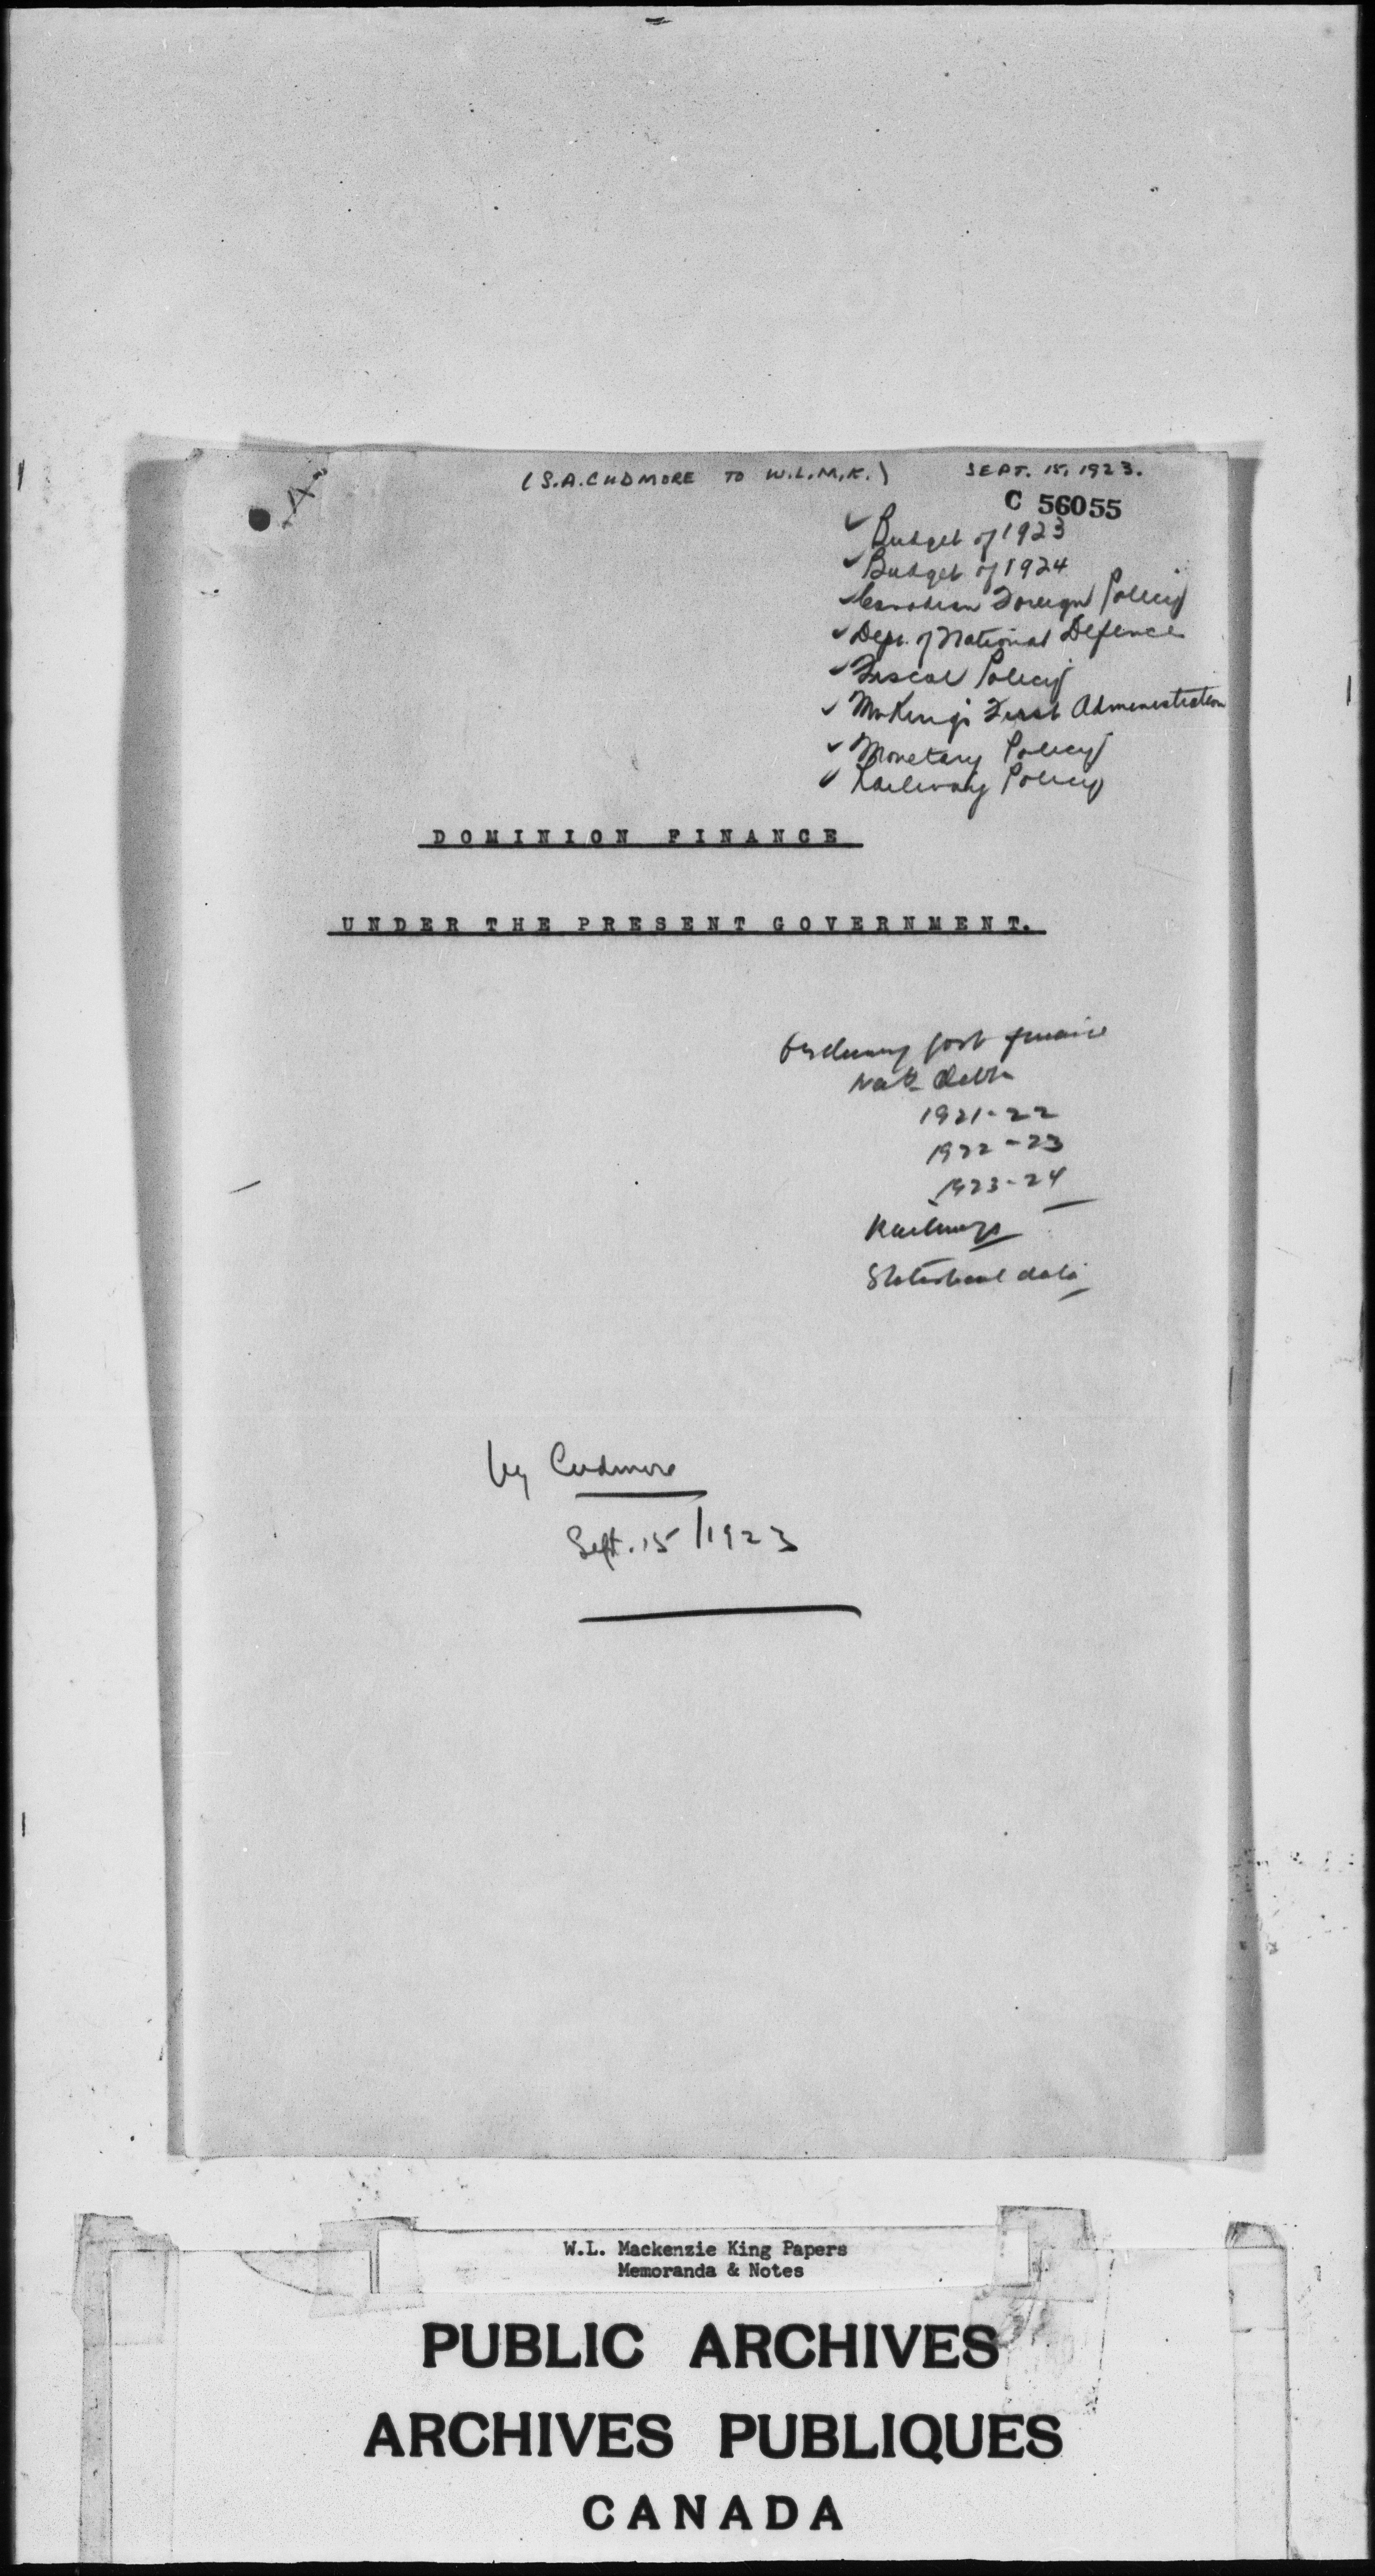 (S.A. CUDMORE TO W.L.M.K.) SEPT. 15, 1923.
C 56055
✓ Budget of 1923
✓ Budget of 1924
✓ Canadian Foreign Policy
✓ Dept. of National Defence
✓ Fiscal Policy
✓ Mr King's First Administration
✓ Monetary Policy
✓ Railway Policy
DOMINION FINANCE
UNDER THE PRESENT GOVERNMENT.
finance
Natl Debt
1921-22
1922-23
1923-24
Railways
Statistical data
by Cudmore
Sept. 15/1923
W.L. Mackenzie King Papers
Memoranda & Notes
PUBLIC ARCHIVES
ARCHIVES PUBLIQUES
CANADA